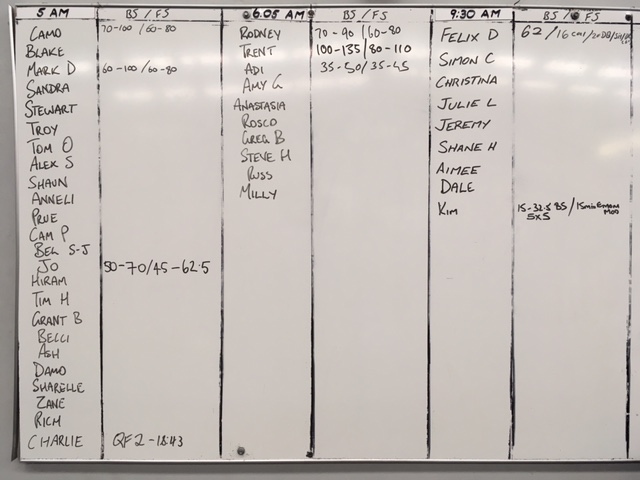 5 AM BS / FS 6.05 AM BS / FS 9:30 AM BS / FS
CAMO 70-100 / 60-80
BLAKE
MARK D 60-100 / 60-80
SANDRA
STEWART
TROY
TOM O
ALEX S
SHAUN
ANNELI
PRUE
CAM P
BEL S-J
JO 50-70/45-62.5
HIRAM
TIM H
GRANT B
BELLI
ASH
DAMO
SHARELLE
ZANE
RICH
CHARLIE QF2-18:43
RODNEY 70-90 / 60-80
TRENT 100-135 / 80-110
ADI 35-50 / 35-45
AMY G
ANASTASIA
ROSCO
GREG B
STEVE H
RUSS
MILLY
FELIX D 62 / 16 cal /
SIMON C
CHRISTINA
JULIE L
JEREMY
SHANE H
AIMEE
DALE
KIM 15-32.5 BS / 15min Emom
5x5 MOD